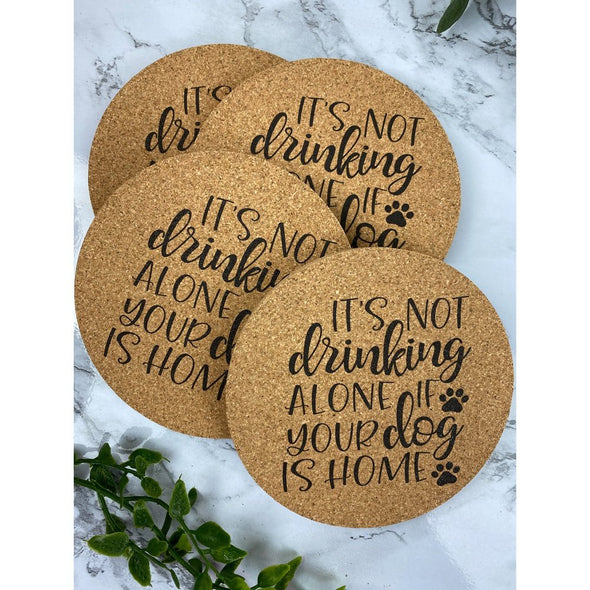 IT'S
drin
IT'S NOT
drinking
NE IF
dog
IT'S NOT
drinking
ALONE
YOUR d
IS HOME
IT'S NOT
drinking
ALONE IF
YOUR dog
IS HOME